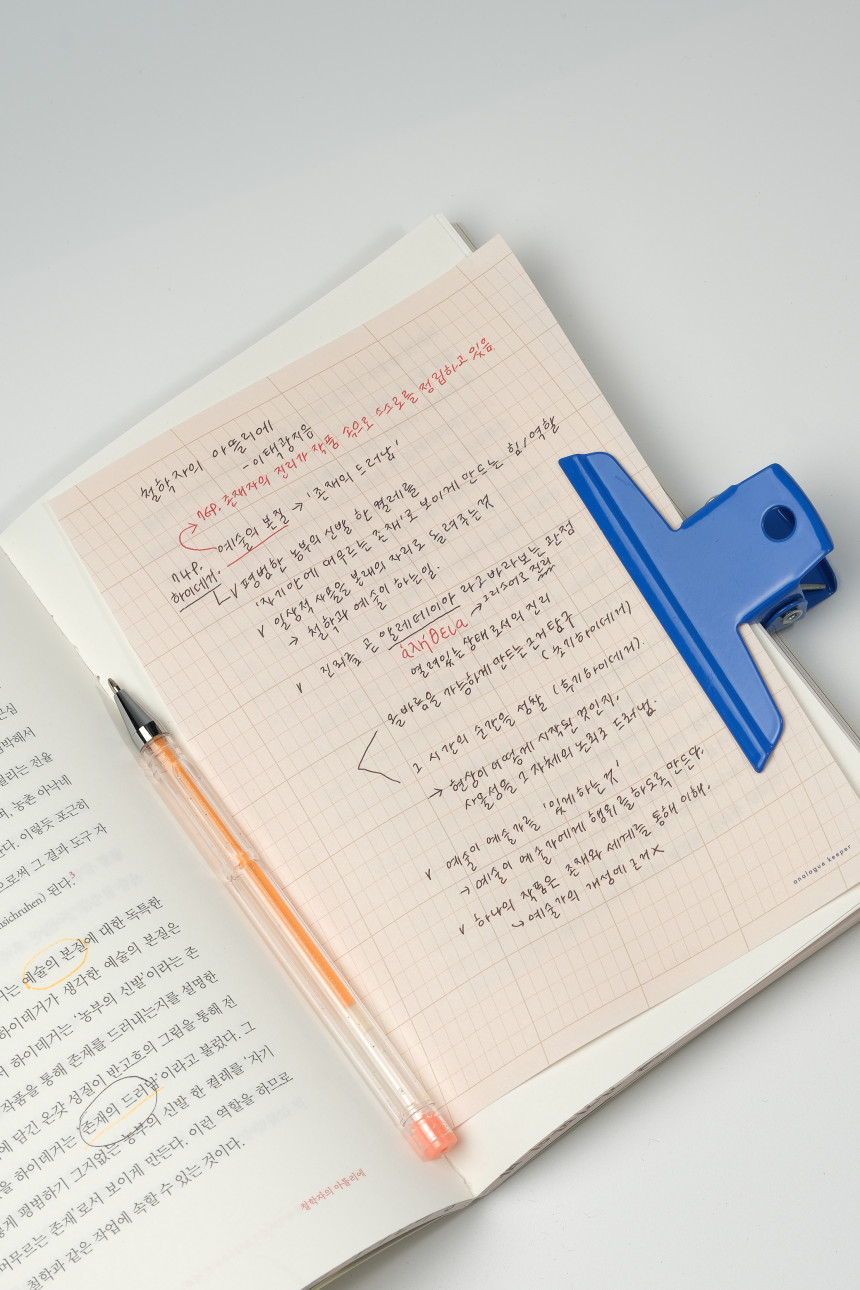 철학자의 아뜰리에
-이택광지음
76P. 존재자의 진리가 작품 속으로 스스로를 정립하고 있음
예술의 본질 → '존재의 드러남'
74P.
하이데거.
v 평범한 농부의 신발 한 켤레를
'자기 안에 머무르는 존재'로 보이게 만드는 힘/역할
v 일상적 사물을 본래의 자리로 돌려주는 것
→ 철학과 예술이 하는 일.
v 진리를 곧 알레테이아 라고 바라보는 관점
ἀλήθεια → 그리스어로 진리
열려있는 상태로서의 진리
올바름을 가능하게 만드는 근거 탐구
(초기하이데거)
그 시간의 순간을 성찰 (후기하이데거).
→ 현상이 어떻게 시작된 것인지.
사물성을 그 자체의 논리로 드러냄.
v 예술이 예술가를 '있게 하는 것'
→ 예술이 예술가에게 행위를 하도록 만든다.
v 하나의 작품은 존재와 세계를 통해 이해.
↳ 예술가의 개성에 근거 X
analogue keeper
근심
임박해서
걸리는 전율
며, 농촌 아낙네
한다. 이렇듯 포근히
으로써 그 결과 도구 자
된다.3
거는 예술의 본질에 대한 독특한
하이데거가 생각한 예술의 본질은
하이데거는 '농부의 신발'이라는 존
작품을 통해 존재를 드러내는지를 설명한
에 담긴 온갖 성질이 반고흐의 그림을 통해 전
을 하이데거는 '존재의 드러남'이라고 불렀다. 그
렇게 평범하기 그지없는 농부의 신발 한 켤레를 '자기
머무르는 존재'로서 보이게 만든다. 이런 역할을 하므로
철학과 같은 작업에 속할 수 있는 것이다.
철학자의 아틀리에